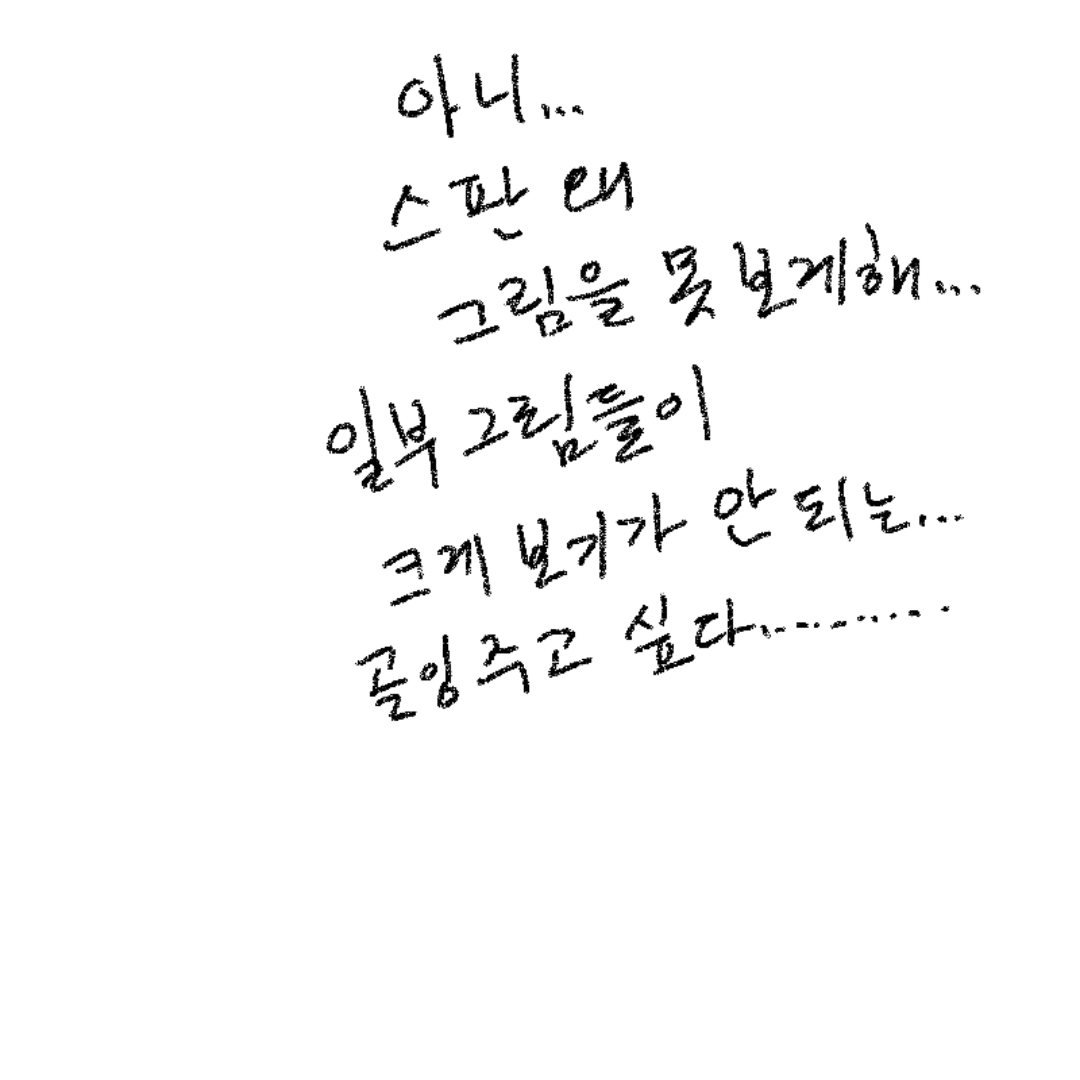 아니...
스판 왜
그림을 못 보게해...
일부 그림들이
크게 보기가 안 되는...
골잉주고 싶다.............